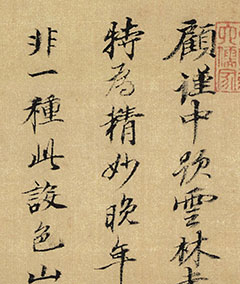 顧謹中題雲林
特爲精妙晚年
非一種此設色山